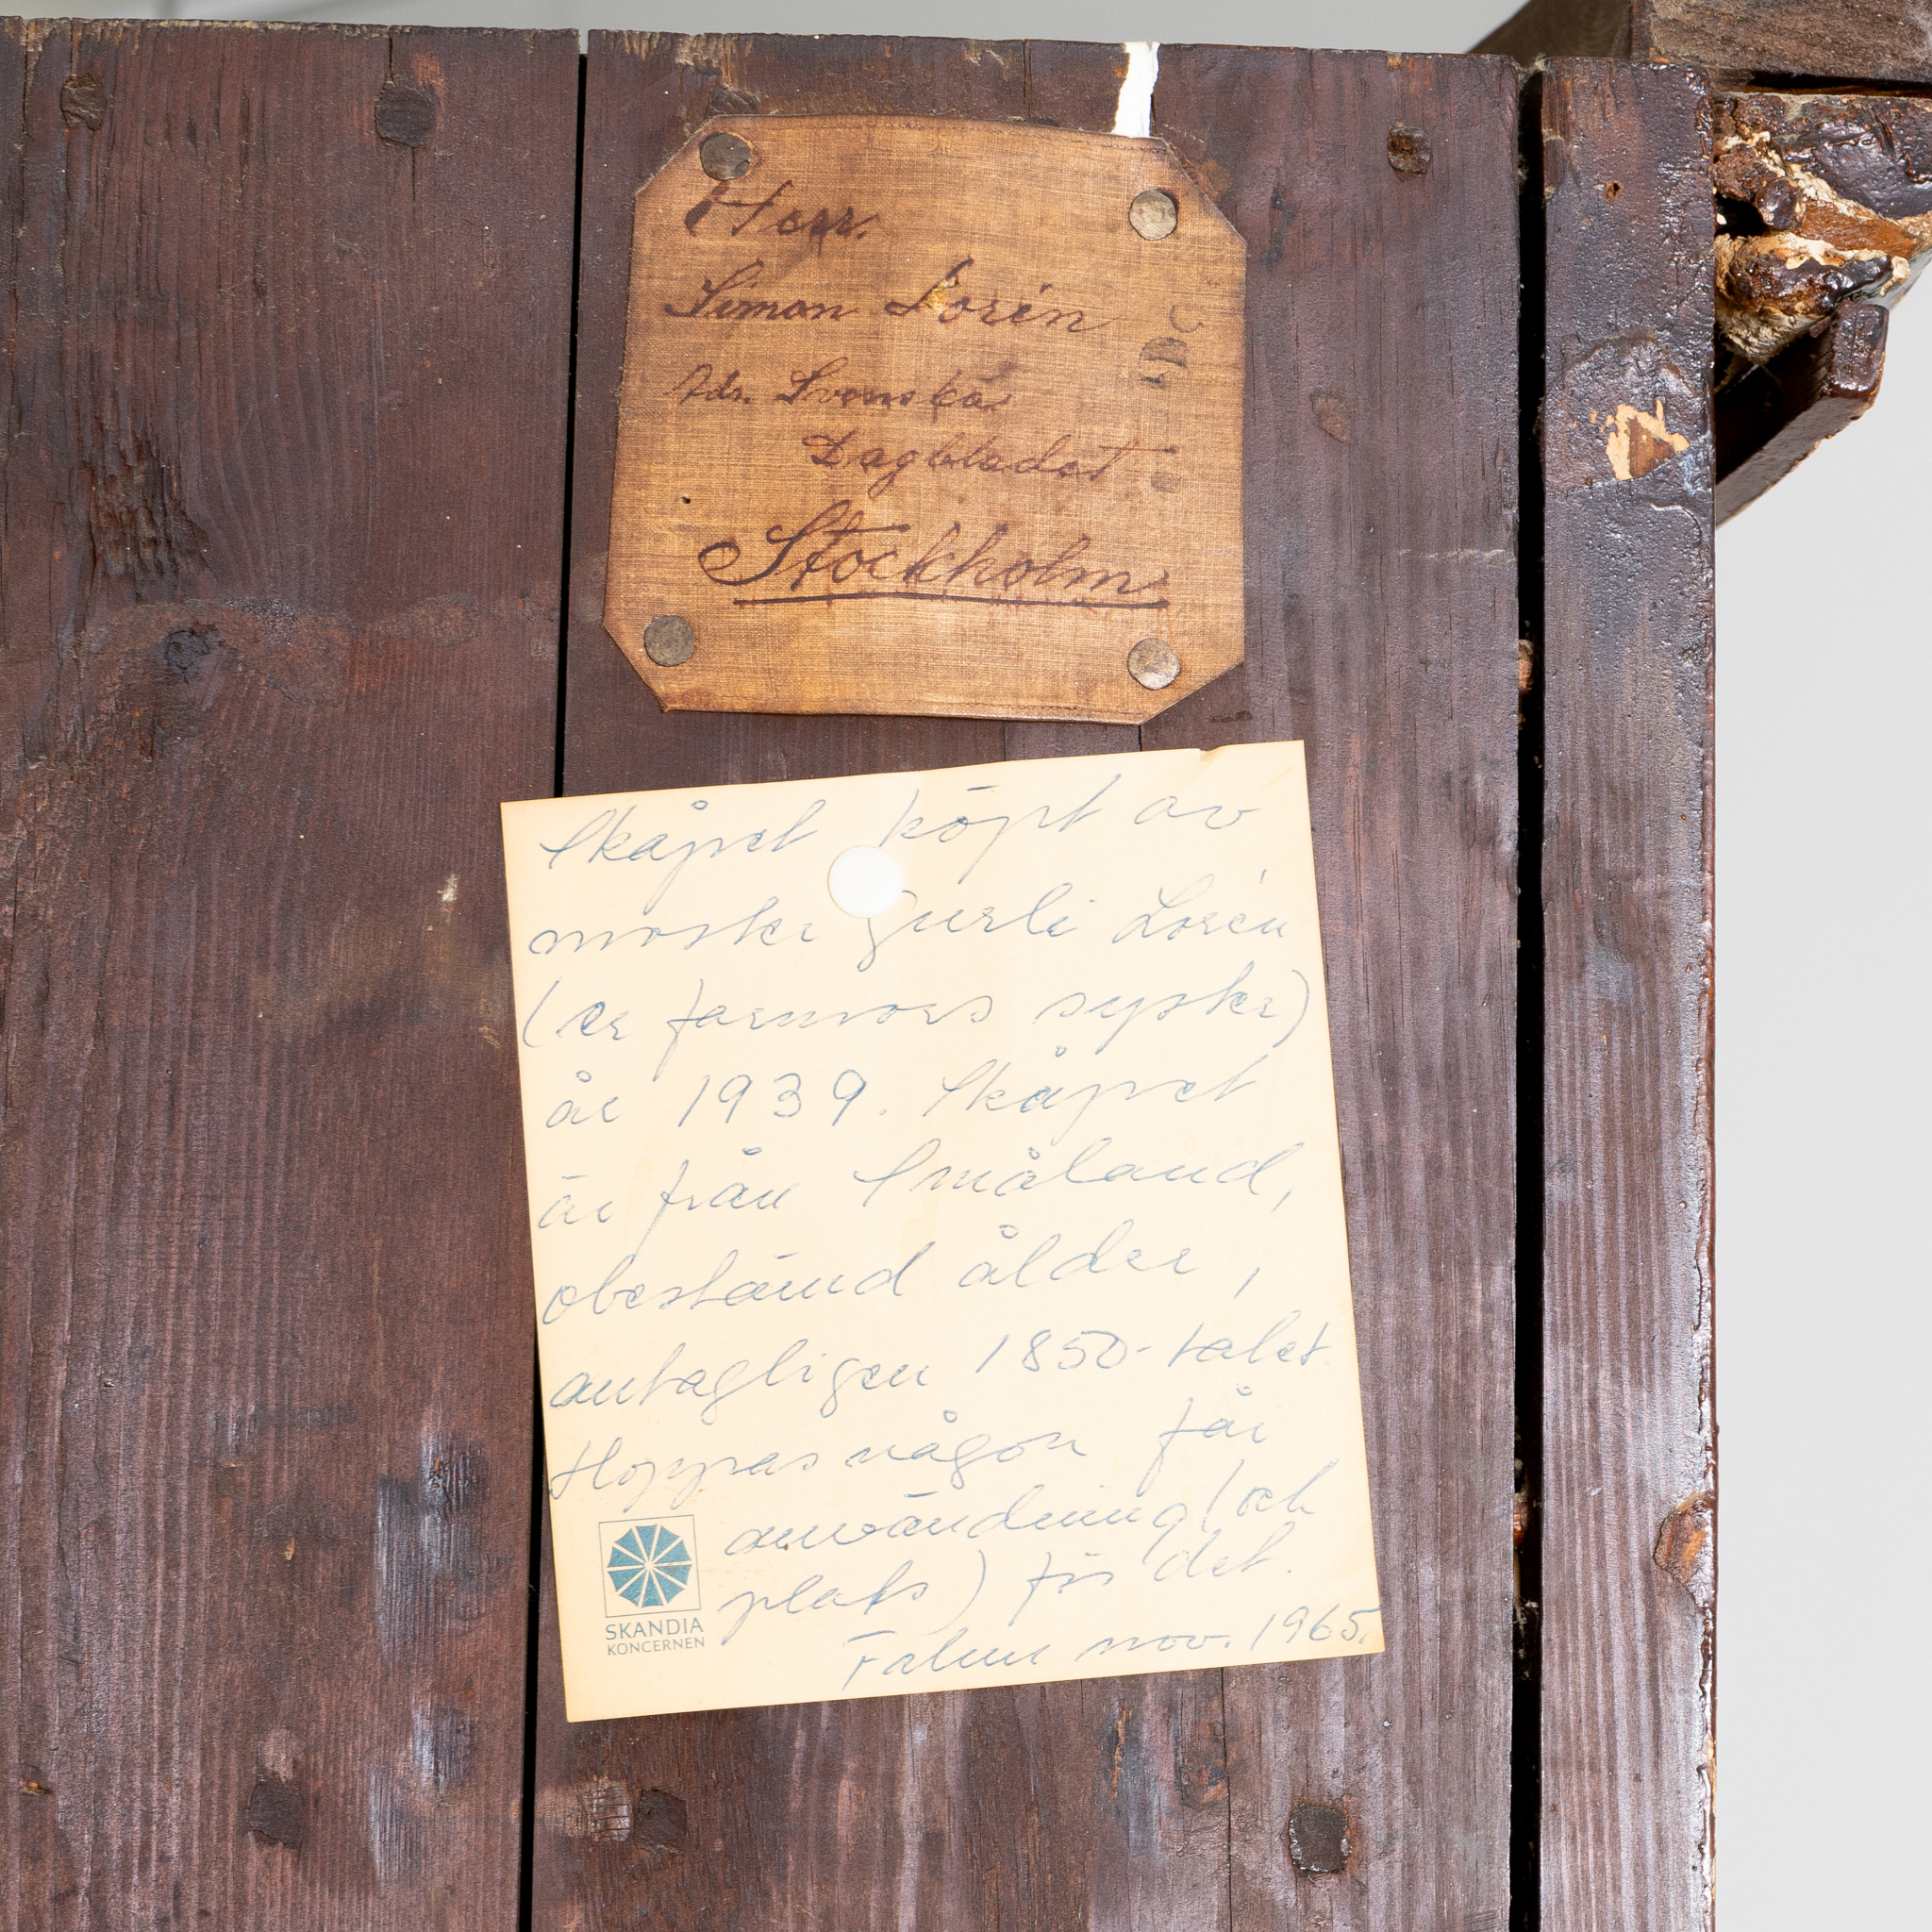 Herr.
Simon Lorén
Adr. Svenska
Dagbladet
Stockholm
Skåpet köpt av
moster Gurli Lorén
(er farmors syster)
år 1939. Skåpet
är från Småland,
obestämd ålder,
antagligen 1850-talet
Hoppas någon får
användning (och
plats) för det.
Falun nov. 1965.
SKANDIA
KONCERNEN